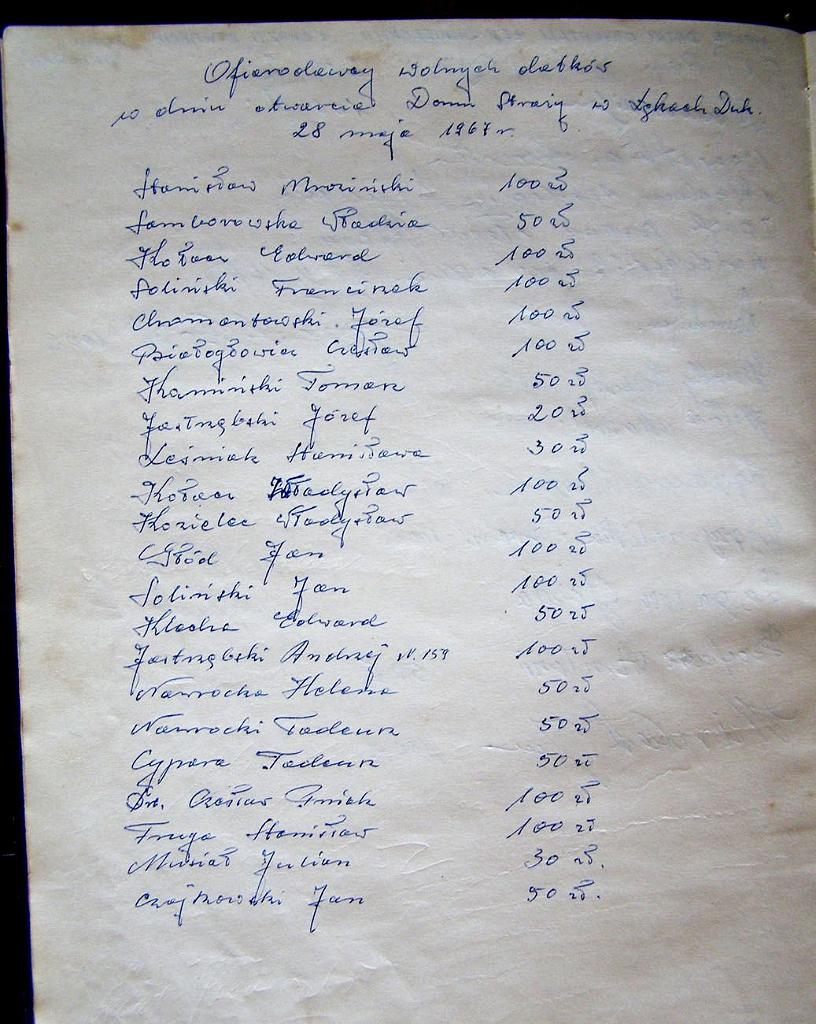 Ofiarodawcy wolnych datków
w dniu otwarcia Domu Straży w Łękach Duk.
28 maja 1967 r.
Stanisław Mroziński 100 zł
Samborowska Władzia 50 zł
Kołacz Edward 100 zł
Soliński Franciszek 100 zł
Chamontowski Józef 100 zł
Białogłowicz Czesław 100 zł
Kamiński Tomasz 50 zł
Jastrzębski Józef 20 zł
Leśniak Stanisława 30 zł
Kołacz Władysław 100 zł
Kozielec Władysław 50 zł
Głód Jan 100 zł
Soliński Jan 100 zł
Klecha Edward 50 zł
Jastrzębski Andrzej N. 159 100 zł
Nawrocka Helena 50 zł
Nawrocki Tadeusz 50 zł
Cypara Tadeusz 50 zł
Dr. Czesław 100 zł
Fruga Stanisław 100 zł
Musiał Julian 30 zł.
Czajkowski Jan 50 zł.